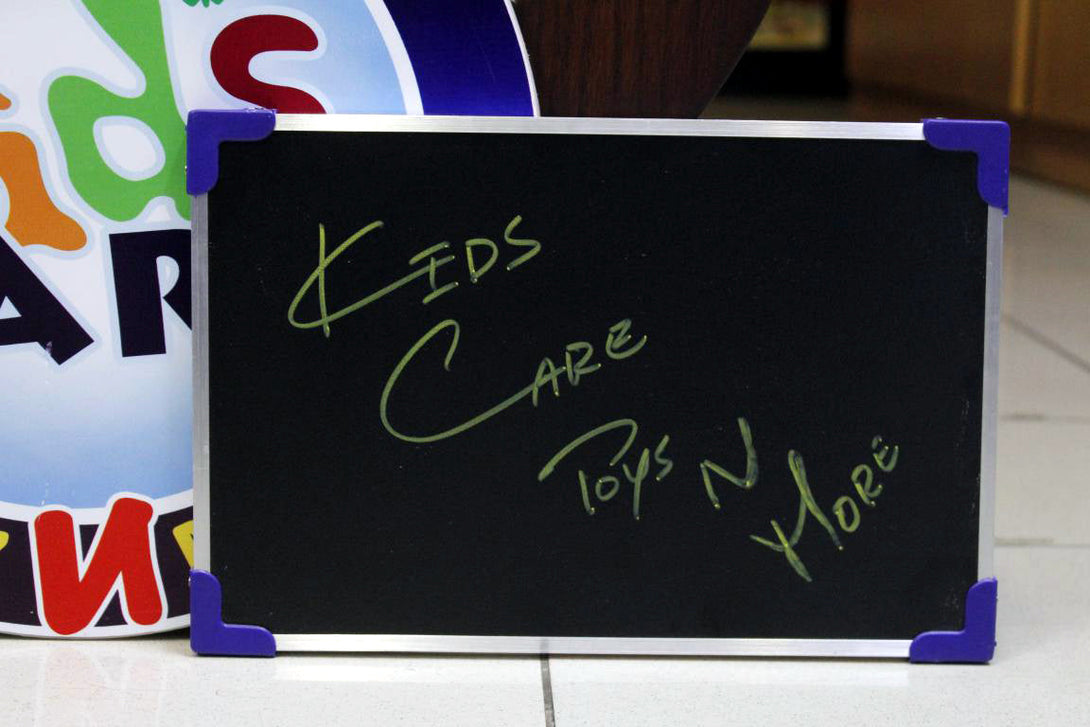 Kids
Care
Toys N
More
ids
AR
N